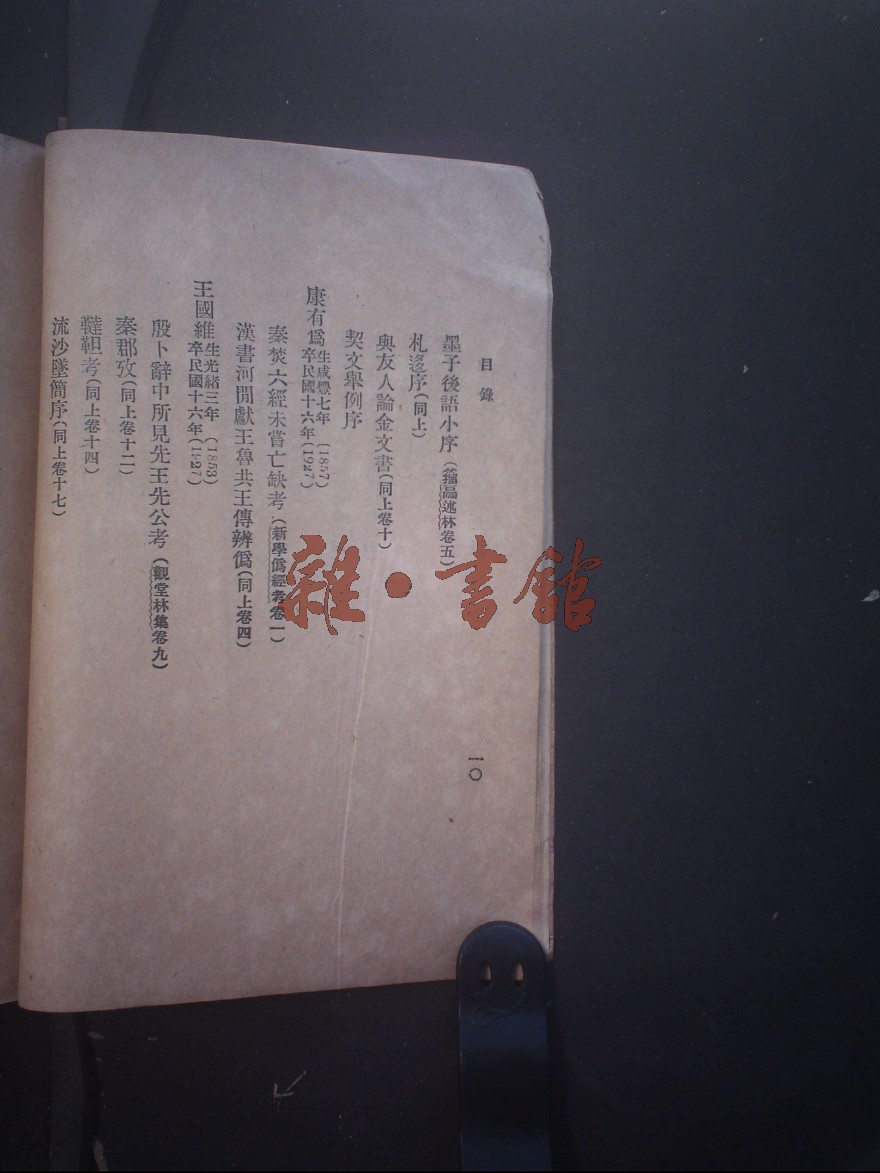 目錄
墨子後語小序(籀廎述林卷五)
札迻序(同上)
與友人論金文書(同上卷十)
契文舉例序
康有爲生咸豐七年(1857)卒民國十六年(1927)
秦焚六經未嘗亡缺考(新學僞經考卷一)
漢書河間獻王魯共王傳辨僞(同上卷四)
王國維生光緒三年(1853)卒民國十六年(1927)
殷卜辭中所見先王先公考(觀堂林集卷九)
秦郡攷(同上卷十二)
韃靼考(同上卷十四)
流沙墜簡序(同上卷十七)
一〇
雜·書館